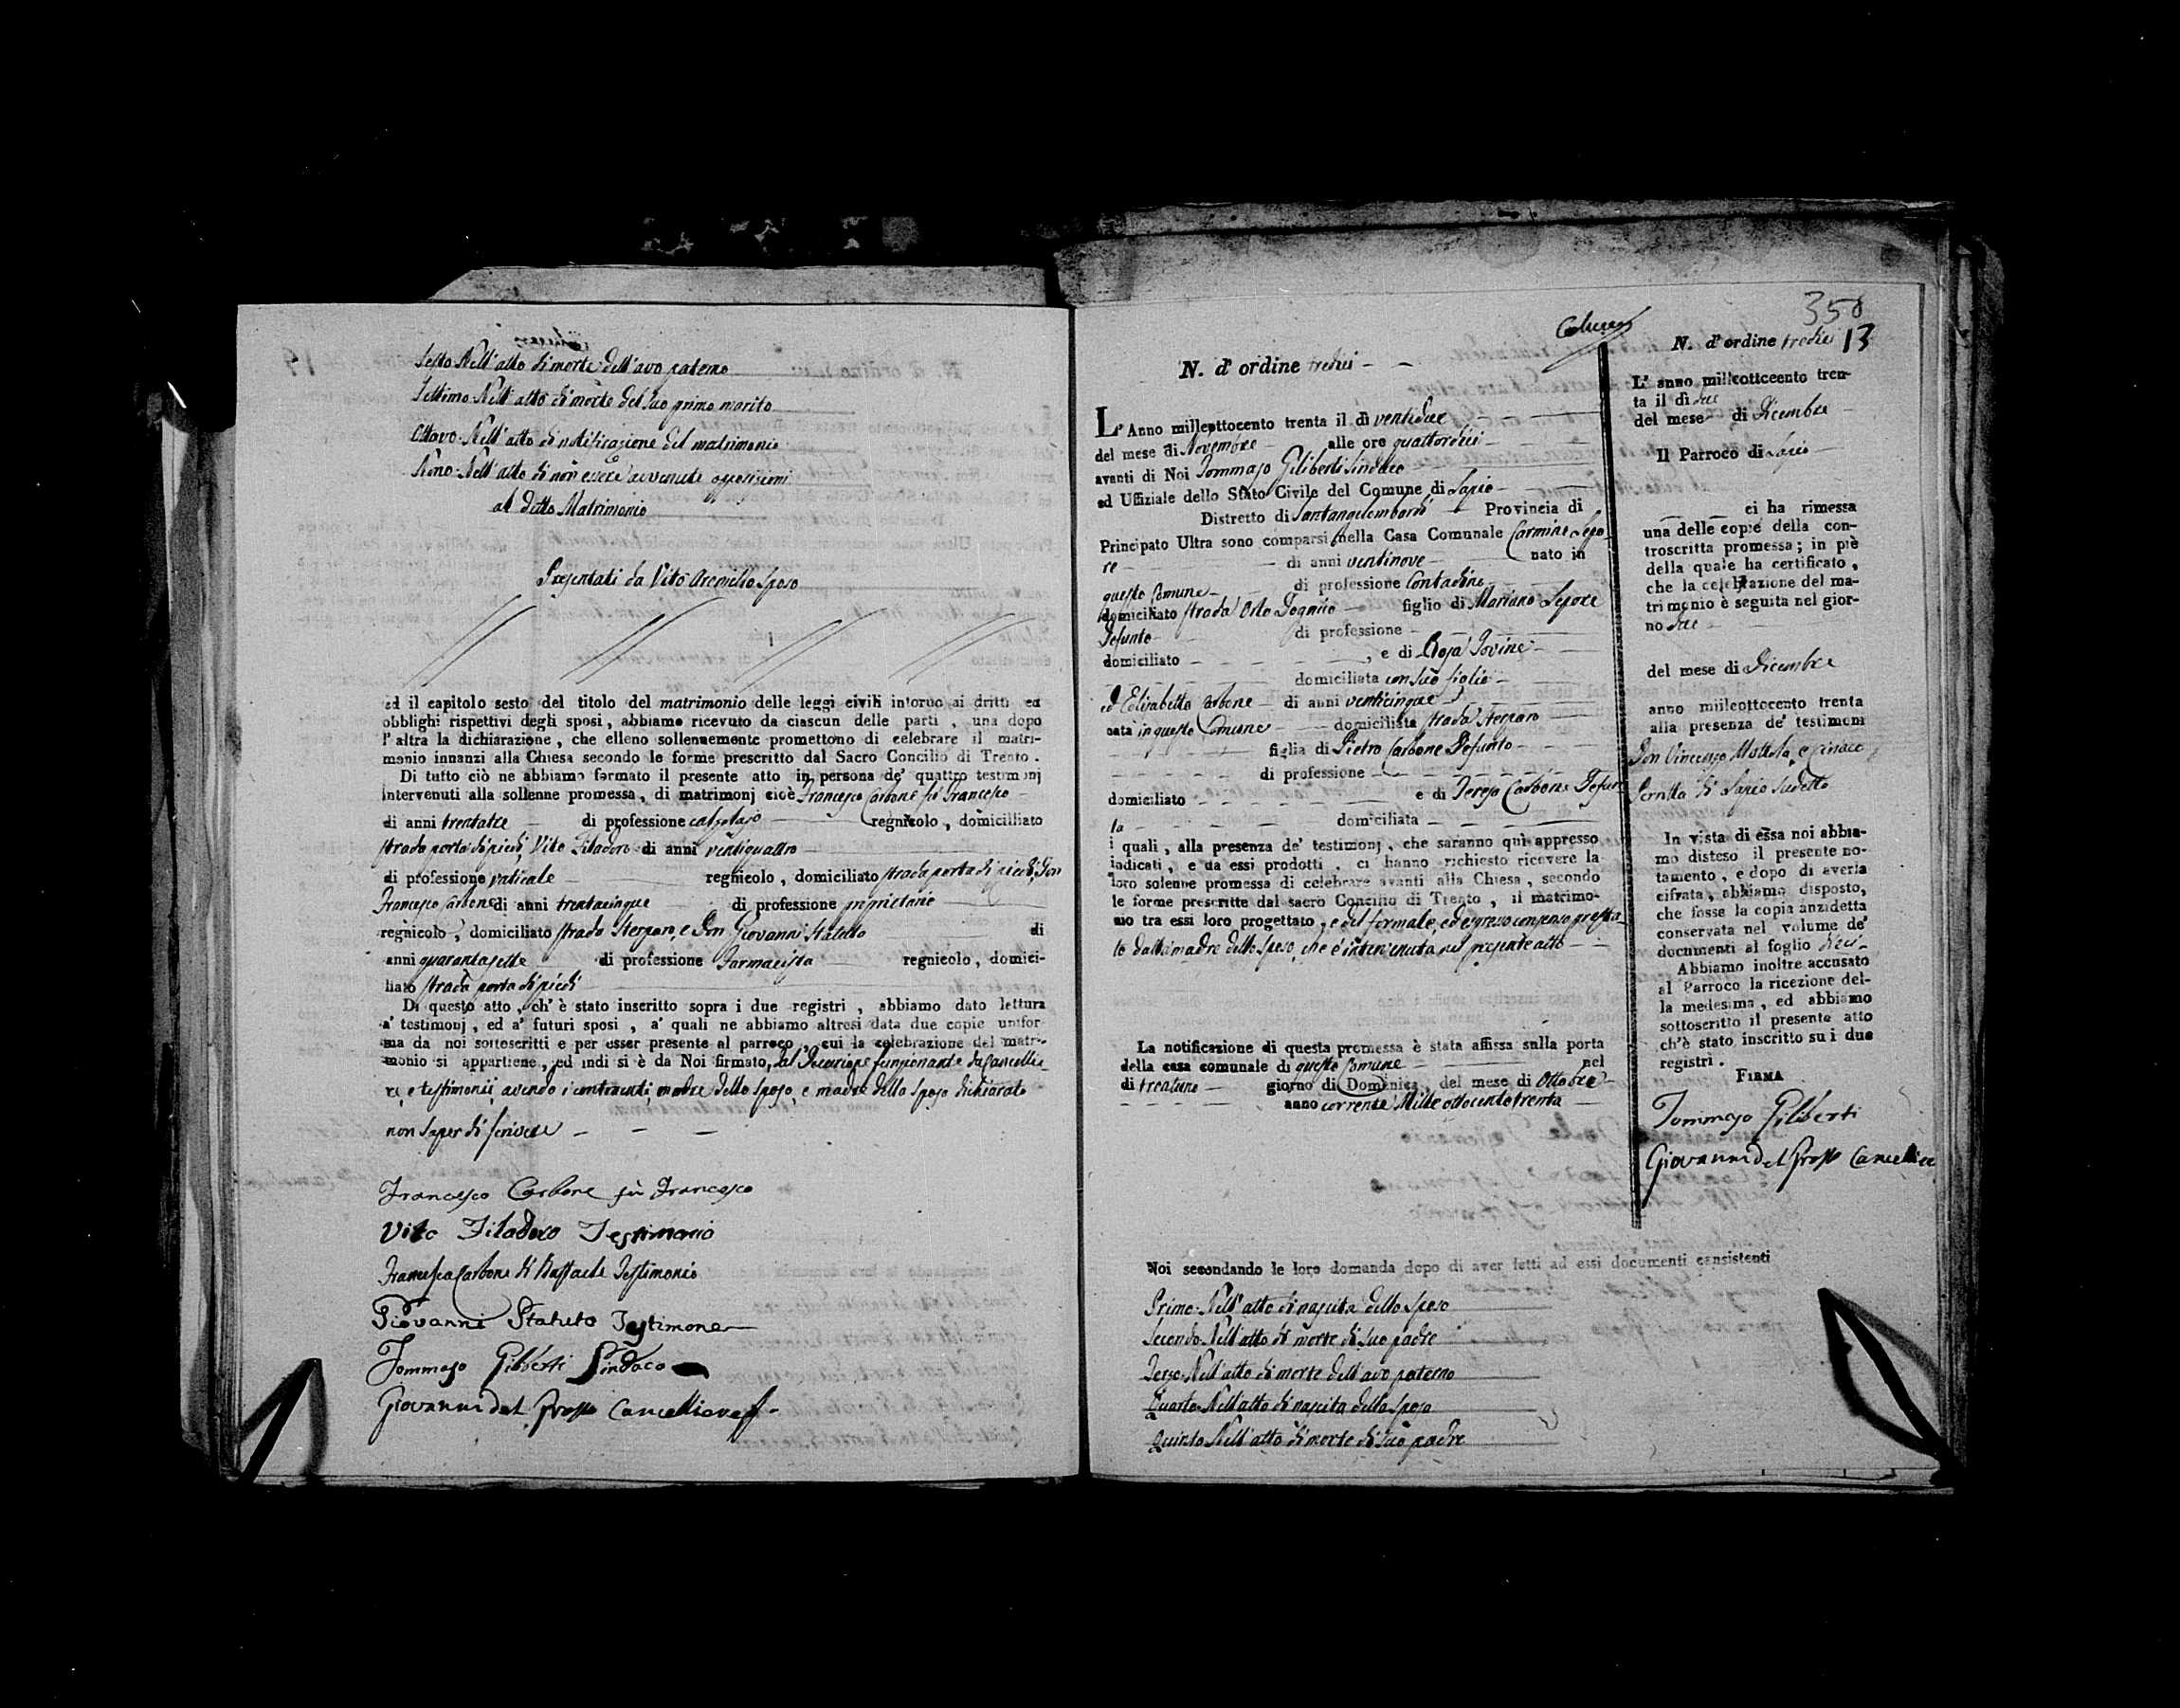 Sesto Nell'atto di morte dell'avo paterno
Settimo Nell'atto di morte del suo primo marito
Ottavo Nell'atto di notificazione del matrimonio
Nono Nell'atto di non essere avvenute opposizioni
al detto Matrimonio
Presentati da Vito sposo
ed il capitolo sesto del titolo del matrimonio delle leggi civili intorno ai dritti ed
obblighi rispettivi degli sposi, abbiamo ricevuto da ciascun delle parti, una dopo
l'altra la dichiarazione, che elleno sollennemente promettono di celebrare il matri-
monio innanzi alla Chiesa secondo le forme prescritto dal Sacro Concilio di Trento.
Di tutto ciò ne abbiamo formato il presente atto in persona de' quattro testimonj
intervenuti alla sollenne promessa, di matrimonj cioè Francesco Carbone fù Francesco
di anni trentatre di professione calzolajo regnicolo, domicilliato
strada porta di piedi, Vito Filadoro di anni ventiquattro
di professione vaticale regnicolo, domiciliato strada porta di piedi, Don
Francesco Carbone di anni trentacinque di professione proprietario
regnicolo, domiciliato strada Sterparo, e Don Giovanni Statuto di
anni quarantasette di professione Farmacista regnicolo, domici-
liato strada porta di piedi
Di questo atto, ch'è stato inscritto sopra i due registri, abbiamo dato lettura
a' testimonj, ed a' futuri sposi, a' quali ne abbiamo altresì data due copie unifor-
ma da noi sottoscritti e per esser presente al parroco, cui la celebrazione del matri-
monio si appartiene, ed indi si è da Noi firmato, dal Decurione funzionante da Cancellie
re, e testimonii, avendo i contraenti, madre dello sposo, e madre della sposa dichiarato
non saper di scrivere
Francesco Carbone fù Francesco
Vito Filadoro Testimonio
Francesco Carbone di Raffaele Testimonio
Giovanni Statuto Testimone
Tommaso Giliberti Sindaco
Giovanni del Grosso Cancelliere
350
N. d' ordine tredici
L'Anno milleottocento trenta il dì ventidue
del mese di Novembre alle ore quattordici
avanti di Noi Tommaso Giliberti Sindaco
ed Uffiziale dello Stato Civile del Comune di Lapio
Distretto di Santangelombardi Provincia di
Principato Ultra sono comparsi nella Casa Comunale Carmine Lepo
re di anni ventinove nato in
questo Comune di professione Contadino
domiciliato strada Orto figlio di Mariano Lepore
Defunto di professione
domiciliato , e di Rosa Iovine
domiciliata con suo figlio
ed Elisabetta Carbone di anni venticinque
nata in questo Comune domiciliata strada Sterparo
figlia di Pietro Carbone Defunto
di professione
domiciliato e di Teresa Carbone Defun
ta domiciliata
i quali, alla presenza de' testimonj, che saranno quì appresso
indicati, e da essi prodotti, ci hanno richiesto ricevere la
loro solenne promessa di celebrare avanti alla Chiesa, secondo
le forme prescritte dal sacro Concilio di Trento, il matrimo-
nio tra essi loro progettato, e del formale, ed espresso consenso presta-
to dalla madre dello sposo, che è intervenuta nel presente atto
La notificazione di questa promessa è stata affissa sulla porta
della casa comunale di questo Comune nel
di trentuno giorno di Domenica, del mese di Ottobre
anno corrente Mille ottocento trenta
Noi secondando le loro domanda dopo di aver letti ad essi documenti consistenti
Primo Nell'atto di nascita dello sposo
Secondo Nell'atto di morte di suo padre
Terzo Nell'atto di morte dell'avo paterno
Quarto Nell'atto di nascita della sposa
Quinto Nell'atto di morte di suo padre
N. d' ordine tredici 13
L' anno millottocento tren-
ta il dì due
del mese di Dicembre
Il Parroco di Lapio
ci ha rimessa
una delle copie della con-
troscritta promessa; in piè
della quale ha certificato,
che la celebrazione del ma-
trimonio è seguita nel gior-
no due
del mese di Dicembre
anno milleottocento trenta
alla presenza de' testimoni
Don Vincenzo e Ciriaco
di Lapio sudetto
In vista di essa noi abbia-
mo disteso il presente no-
tamento, e dopo di averla
cifrata, abbiamo disposto,
che fosse la copia anzidetta
conservata nel volume de'
documenti al foglio dieci
Abbiamo inoltre accusato
al Parroco la ricezione del-
la medesima, ed abbiamo
sottoscritto il presente atto
ch'è stato inscritto su i due
registri.
FIRMA
Tommaso Giliberti
Giovanni del Grosso Cancelliere